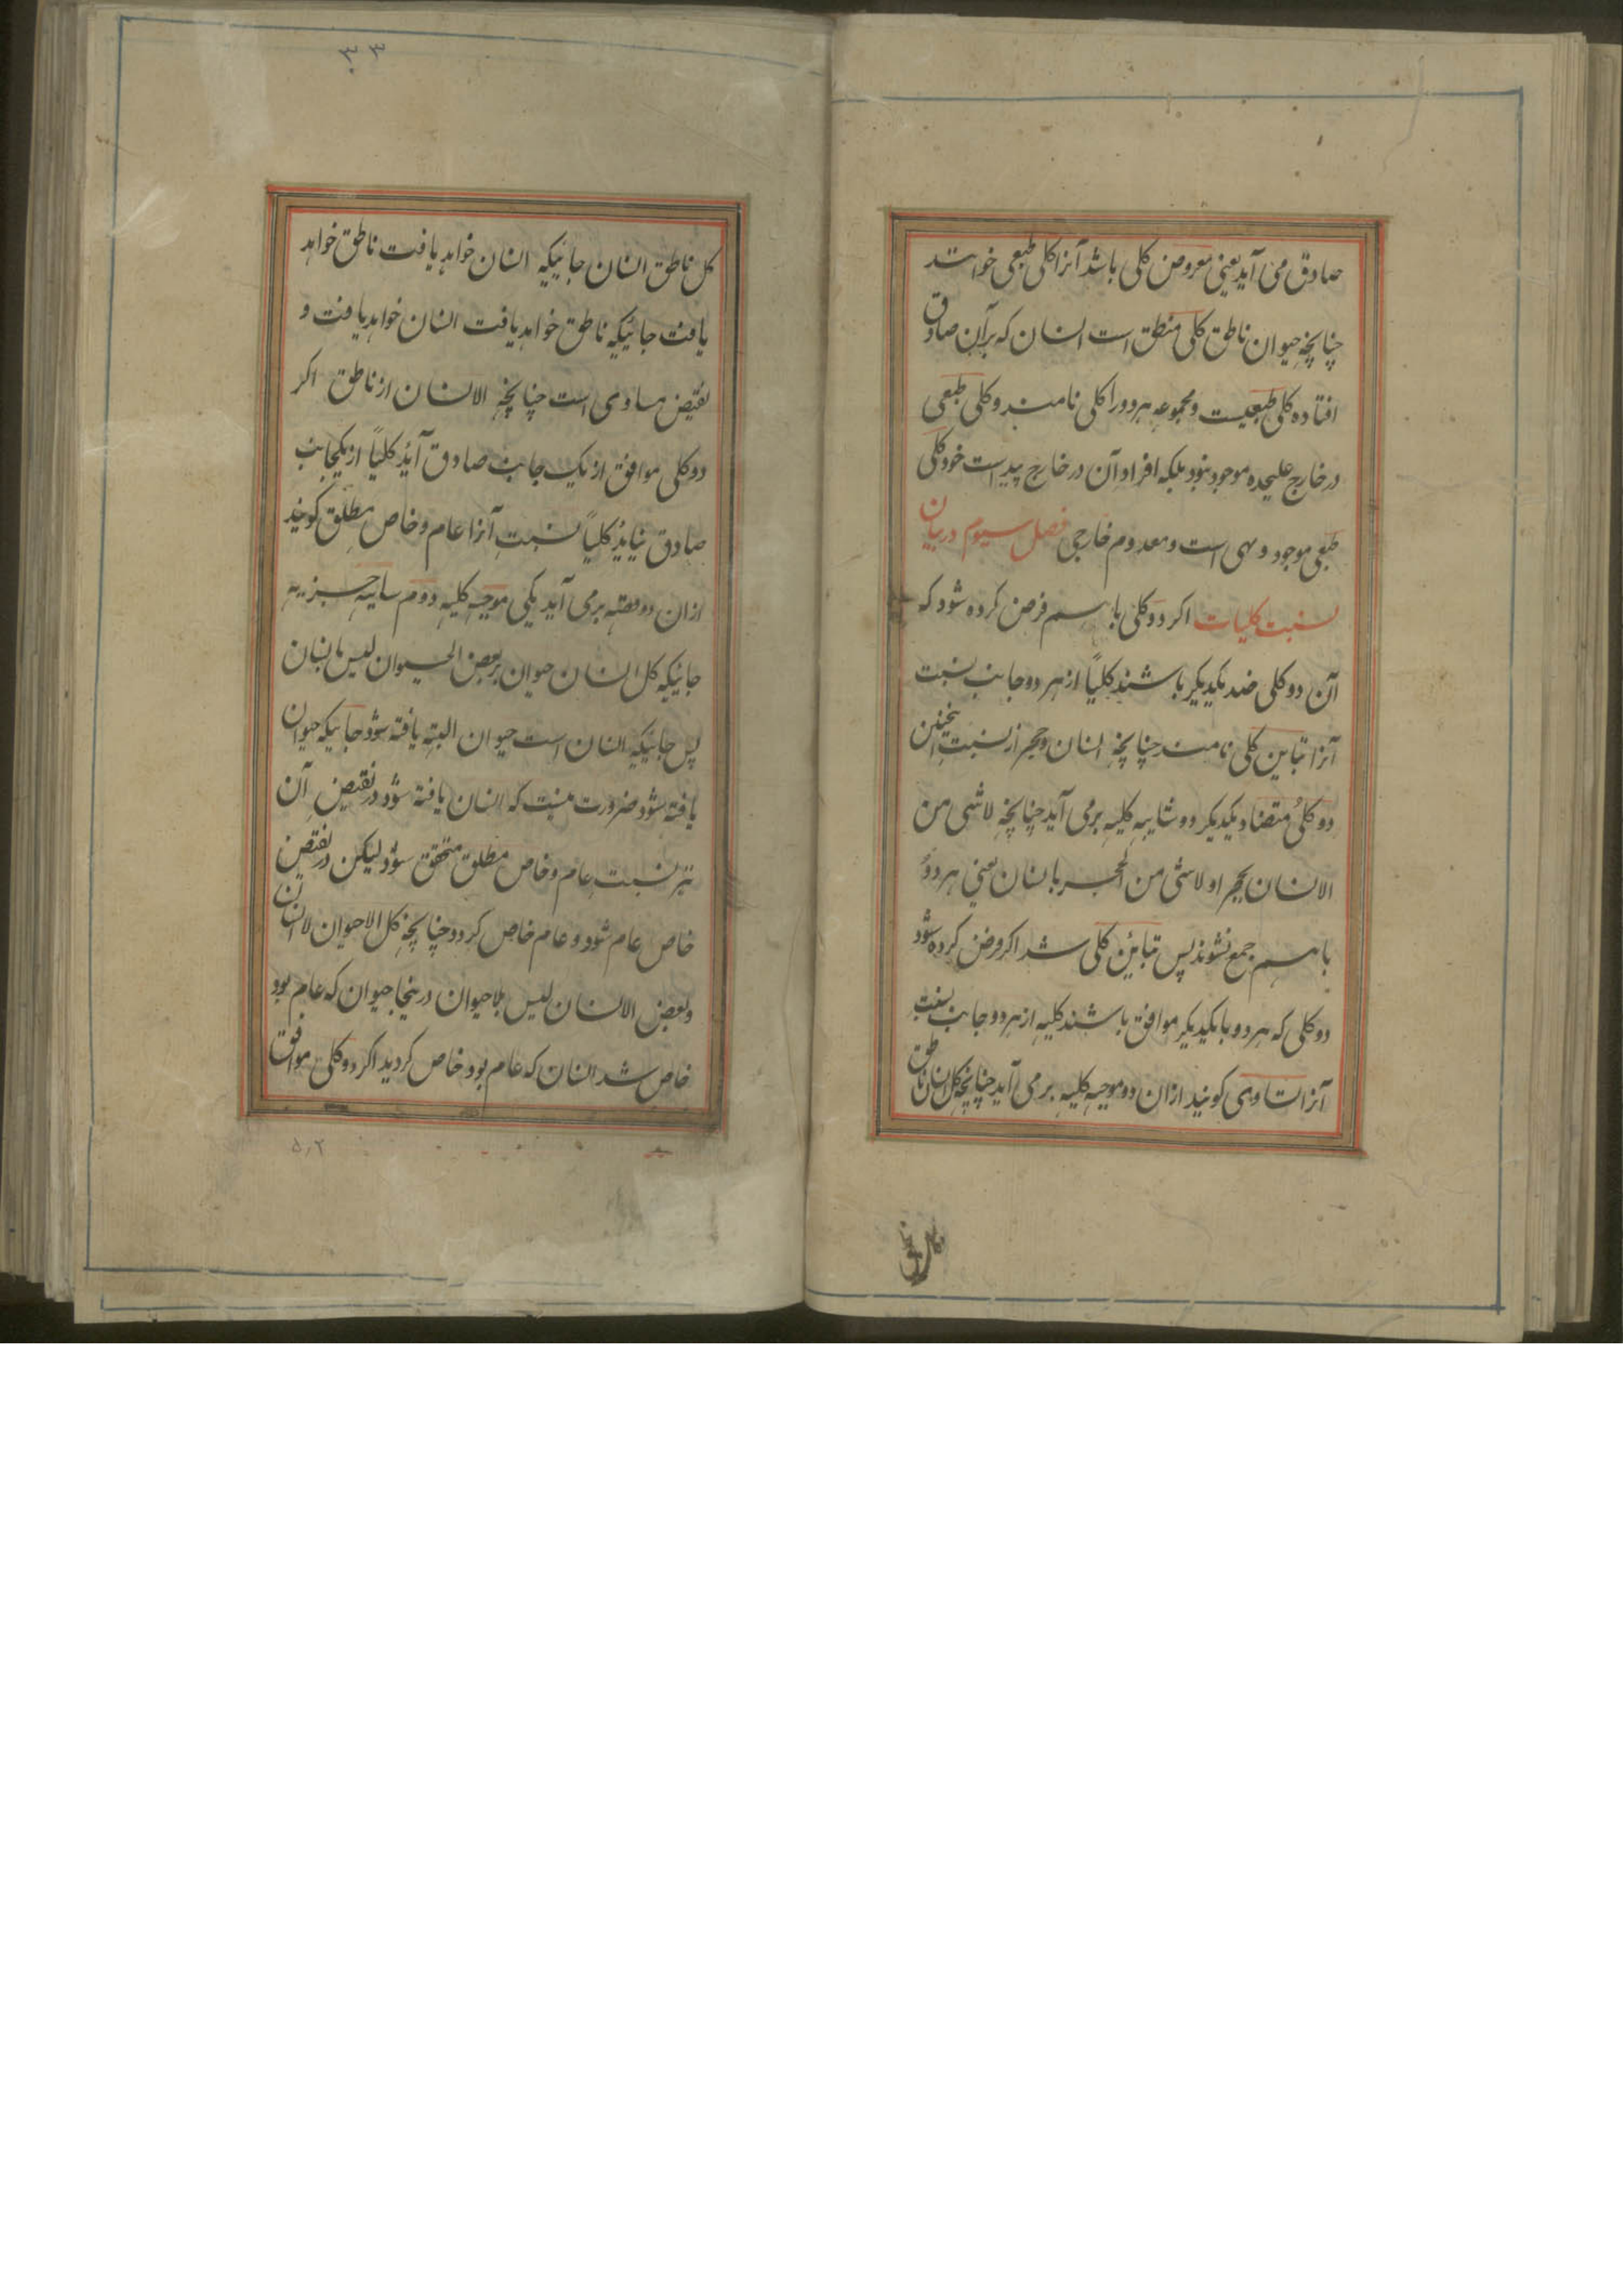 صادق می آید یعنی معروض کلی باشد آنرا کلی طبعی خوانند
چنانچه حیوان ناطق کلی منطق است انسان که برآن صادق
افتاده کلی طبعیست و مجموعه هردو را کلی نامند و کلی طبعی
در خارج علیحده موجود نبود بلکه افراد آن در خارج پیداست خود کلی
طبعی موجود وهمی است و معدوم خارجی فصل سیوم در بیان
نسبت کلیات اکر دو کلی باهم فرض کرده شود که
آن دو کلی ضد یکدیکر باشند کلیاً از هر دو جانب نسبت
آنرا تباین کلی نامند چنانچه انسان و حجر از نسبت اینچنین
دو کلی متضاد یکدیکر دو سالبه کلیه برمی آید چنانچه لاشی من
الانسان بحجر او لاشی من الحجر بانسان یعنی هر دو
باهم جمع نشوند پس تباین کلی شد اکر فرض کرده شود
دو کلی که هر دو با یکدیکر موافق باشند کلیه از هر دو جانب نسبت
آنرا تساوی کویند ازان دو موجبه کلیه برمی آید چنانچه کل انسان ناطق
۳۳
کل ناطق انسان جائیکه انسان خواهد یافت ناطق خواهد
یافت جائیکه ناطق خواهد یافت انسان خواهد یافت و
نقیض مساوی است چنانچه الانسان از ناطق اکر
دو کلی موافق از یک جانب صادق آید کلیاً از یکجانب
صادق نیاید کلیاً نسبت آنرا عام و خاص مطلق کویند
ازان دو برمی آید یکی موجبه کلیه دوم سالبه جزییه
جائیکه کل انسان حیوان بعض الحیوان لیس بانسان
پس جائیکه انسان است حیوان البته یافته شود جائیکه حیوان
یافته شود ضرورت نیست که انسان یافته شود در نقیض آن
نیز نسبت عام و خاص مطلق متحقق شود لیکن در نقیض
خاص عام شود و عام خاص کردد چنانچه کل الاحیوان لاانسان
و بعض الانسان لیس بلاحیوان درینجا حیوان که عام بود
خاص شد انسان که عام بود خاص کردید اکر دو کلی موافق